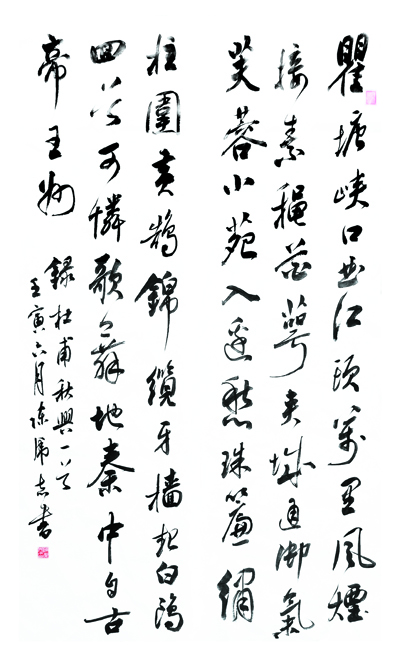 瞿塘峽口曲江頭萬里風煙
接素穐花萼夾城通御氣
芙蓉小苑入邊愁珠簾繡
柱圍黃鵠錦纜牙檣起白鷗
回首可憐歌舞地秦中自古
帝王州
錄杜甫秋興一首
壬寅六月陳志書